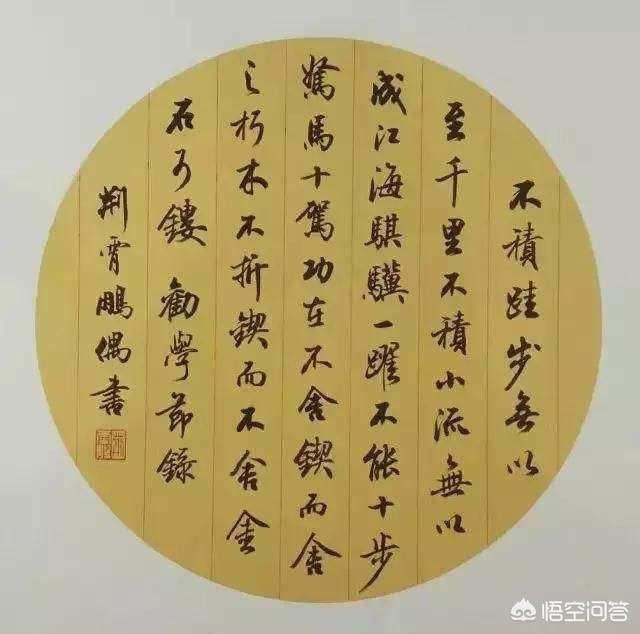 不積跬步無以
至千里不積小流無以
成江海騏驥一躍不能十步
駑馬十駕功在不舍鍥而舍
之朽木不折鍥而不舍金
石可鏤 勸學節錄
荆霄鵬偶書
悟空问答